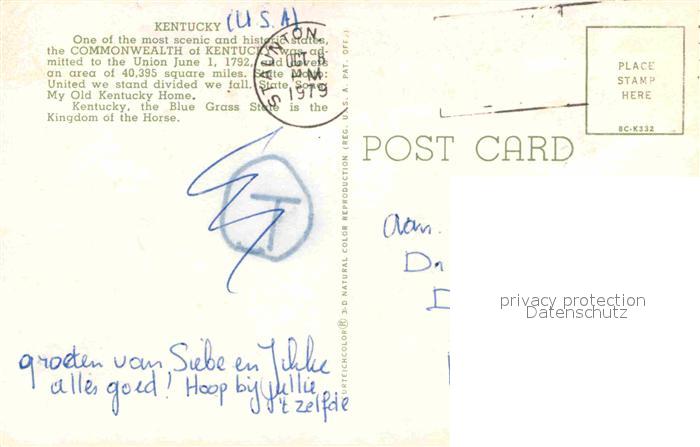 KENTUCKY (U.S.A)
One of the most scenic and historic states,
the COMMONWEALTH of KENTUCKY was ad-
mitted to the Union June 1, 1792, and covers
an area of 40,395 square miles. State Motto:
United we stand divided we fall. State Song:
My Old Kentucky Home.
Kentucky, the Blue Grass State is the
Kingdom of the Horse.
STAUNTON
OCT
PM
1979
T
groeten van Siebe en
alles goed! Hoop bij jullie
't zelfde
URTEICHCOLOR® 3-D NATURAL COLOR REPRODUCTION (REG. U.S.A. PAT. OFF.)
POST CARD
PLACE
STAMP
HERE
8C-K332
Aan.
privacy protection
Datenschutz